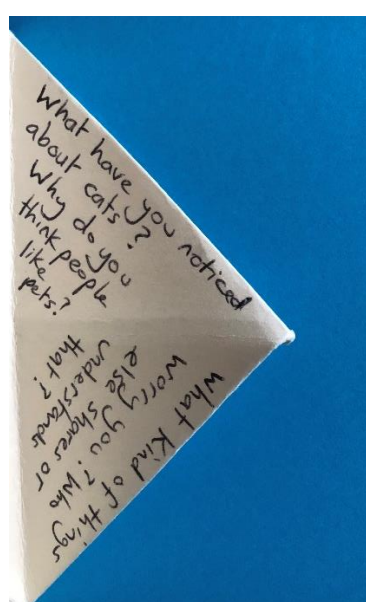 What have you noticed
about cats?
Why do you
think people
like
pets?
What kind of things
worry you? Who
else shares or
understands
that?